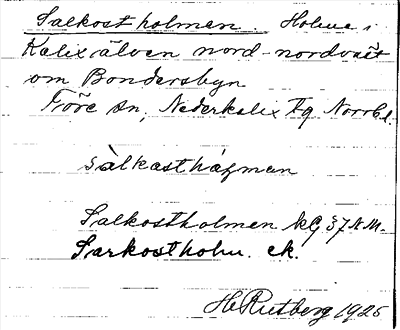 Salkostholmen. Holme i
Kalix älven nord-nordväst
om Bondersbyn
Töre sn, Nederkalix Tg Norrb l.
Salkostholmen kG 37 A.M.
Sarkostholm. ek.
H. Rutberg 1925